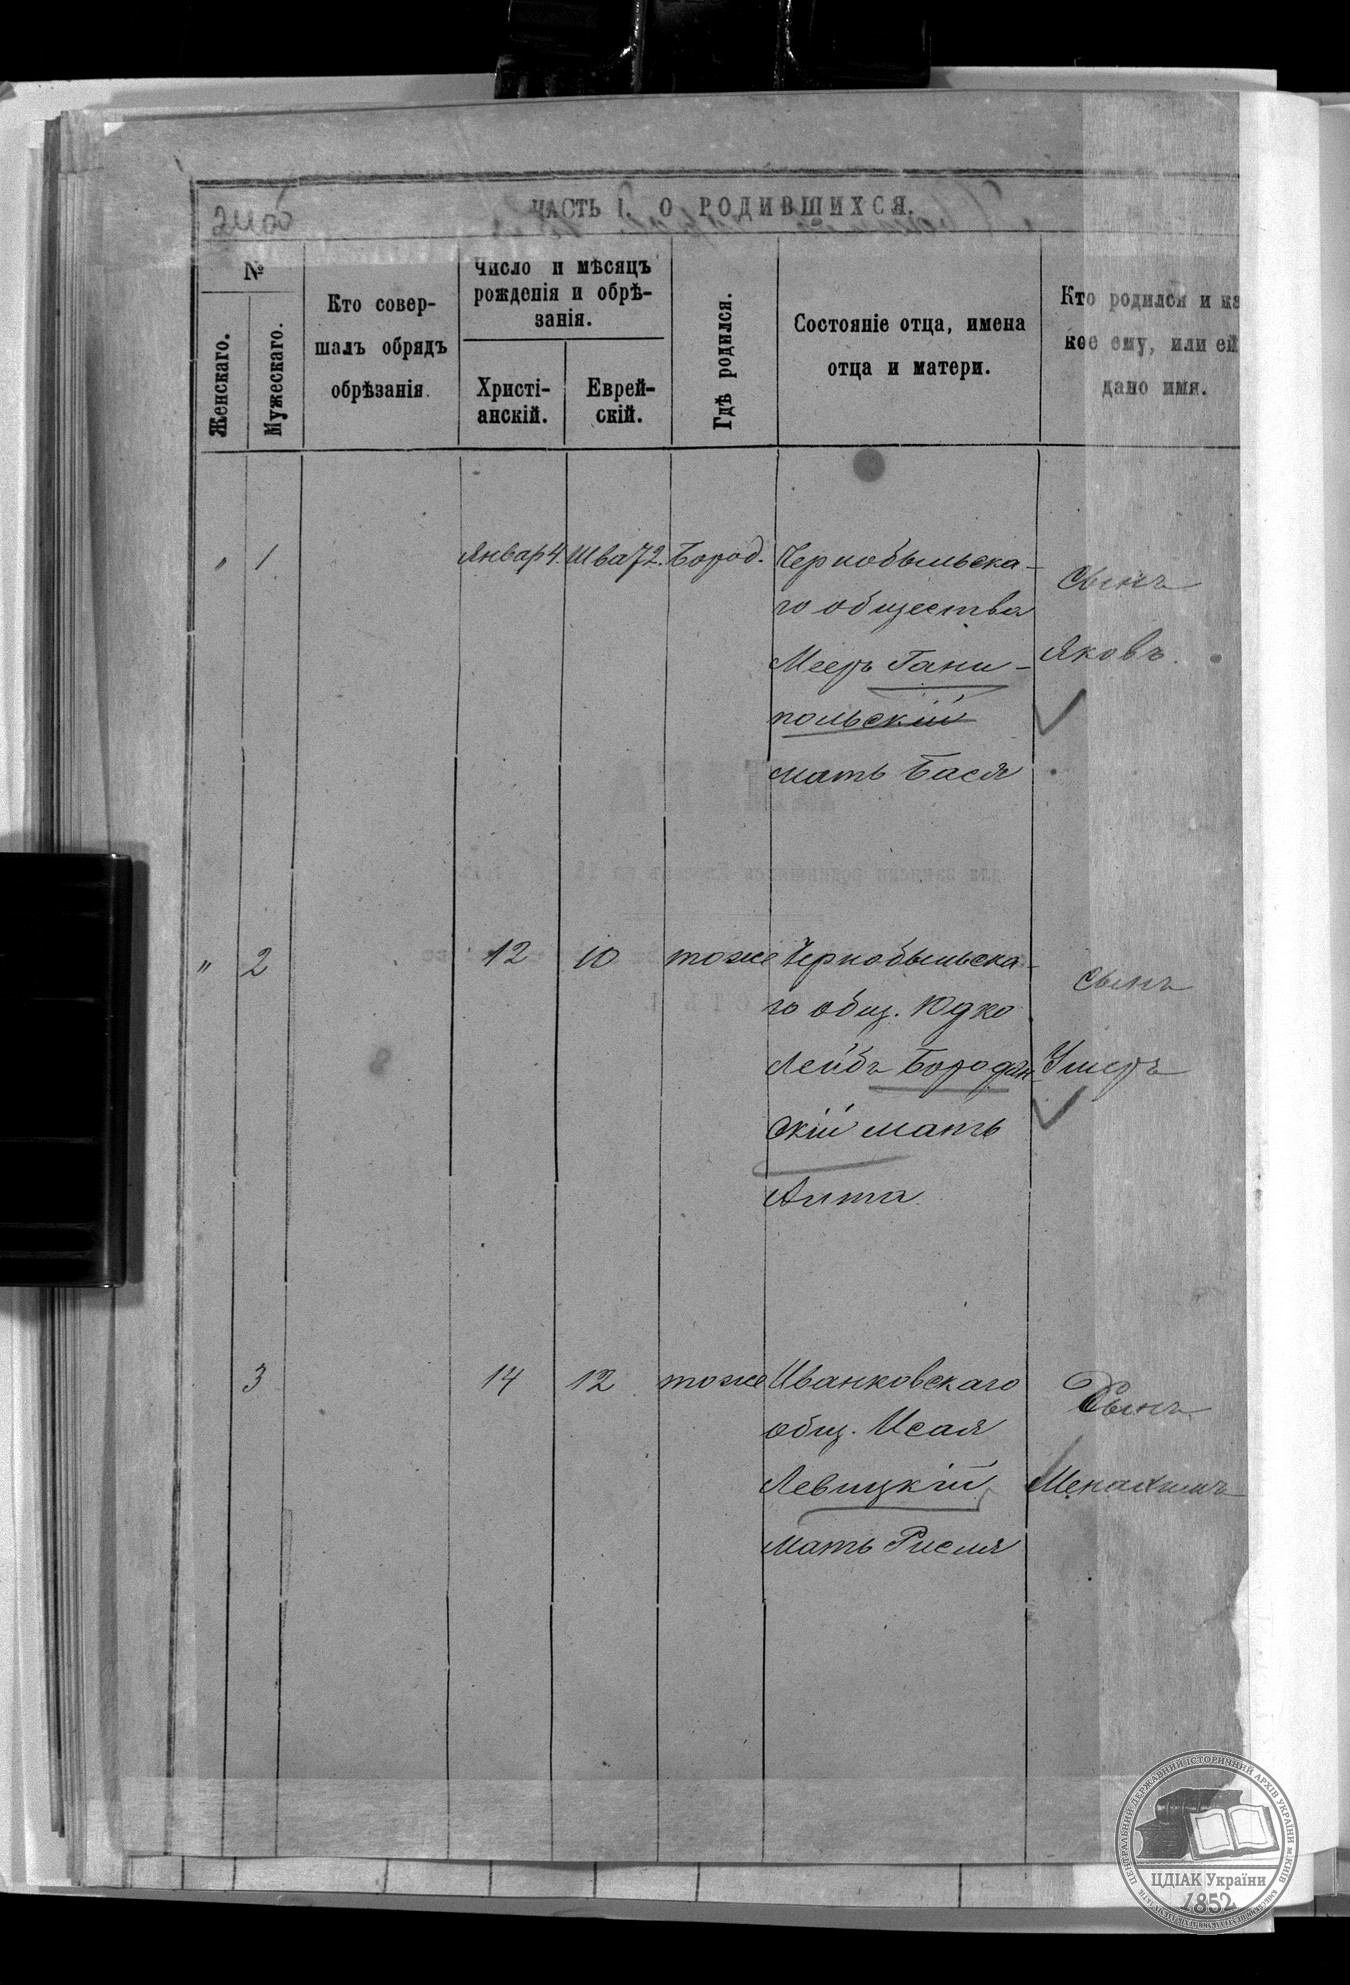 ЧАСТЬ I. О РОДИВШИХСЯ.
№
Женскаго.
Мужескаго.
Кто совер-
шалъ обрядъ
обрѣзанія.
Число и мѣсяцъ
рожденія и обрѣ-
занія.
Христі-
анскій.
Еврей-
скій.
Гдѣ родился.
Состояніе отца, имена
отца и матери.
Кто родился и ка
кое ему, или ей
дано имя.
" 1 Январ 4. Шва 72. Бород. Чернобыльска-
го общества
Мееръ Гани-
польскій
мать Бася
сынъ
Яковъ.
" 2 12 10 тоже Чернобыльска-
го общ. Юдко
Лейбъ Бородян
скій мать
Алта
сынъ
Ушеръ
3 14 12 тоже Иванковскаго
общ. Исая
Левицкій
мать Рисля
Сынъ
Менахимъ
ЦЕНТРАЛЬНИЙ ДЕРЖАВНИЙ ІСТОРИЧНИЙ АРХІВ УКРАЇНИ М.КИЇВ
ЦДІАК України
1852